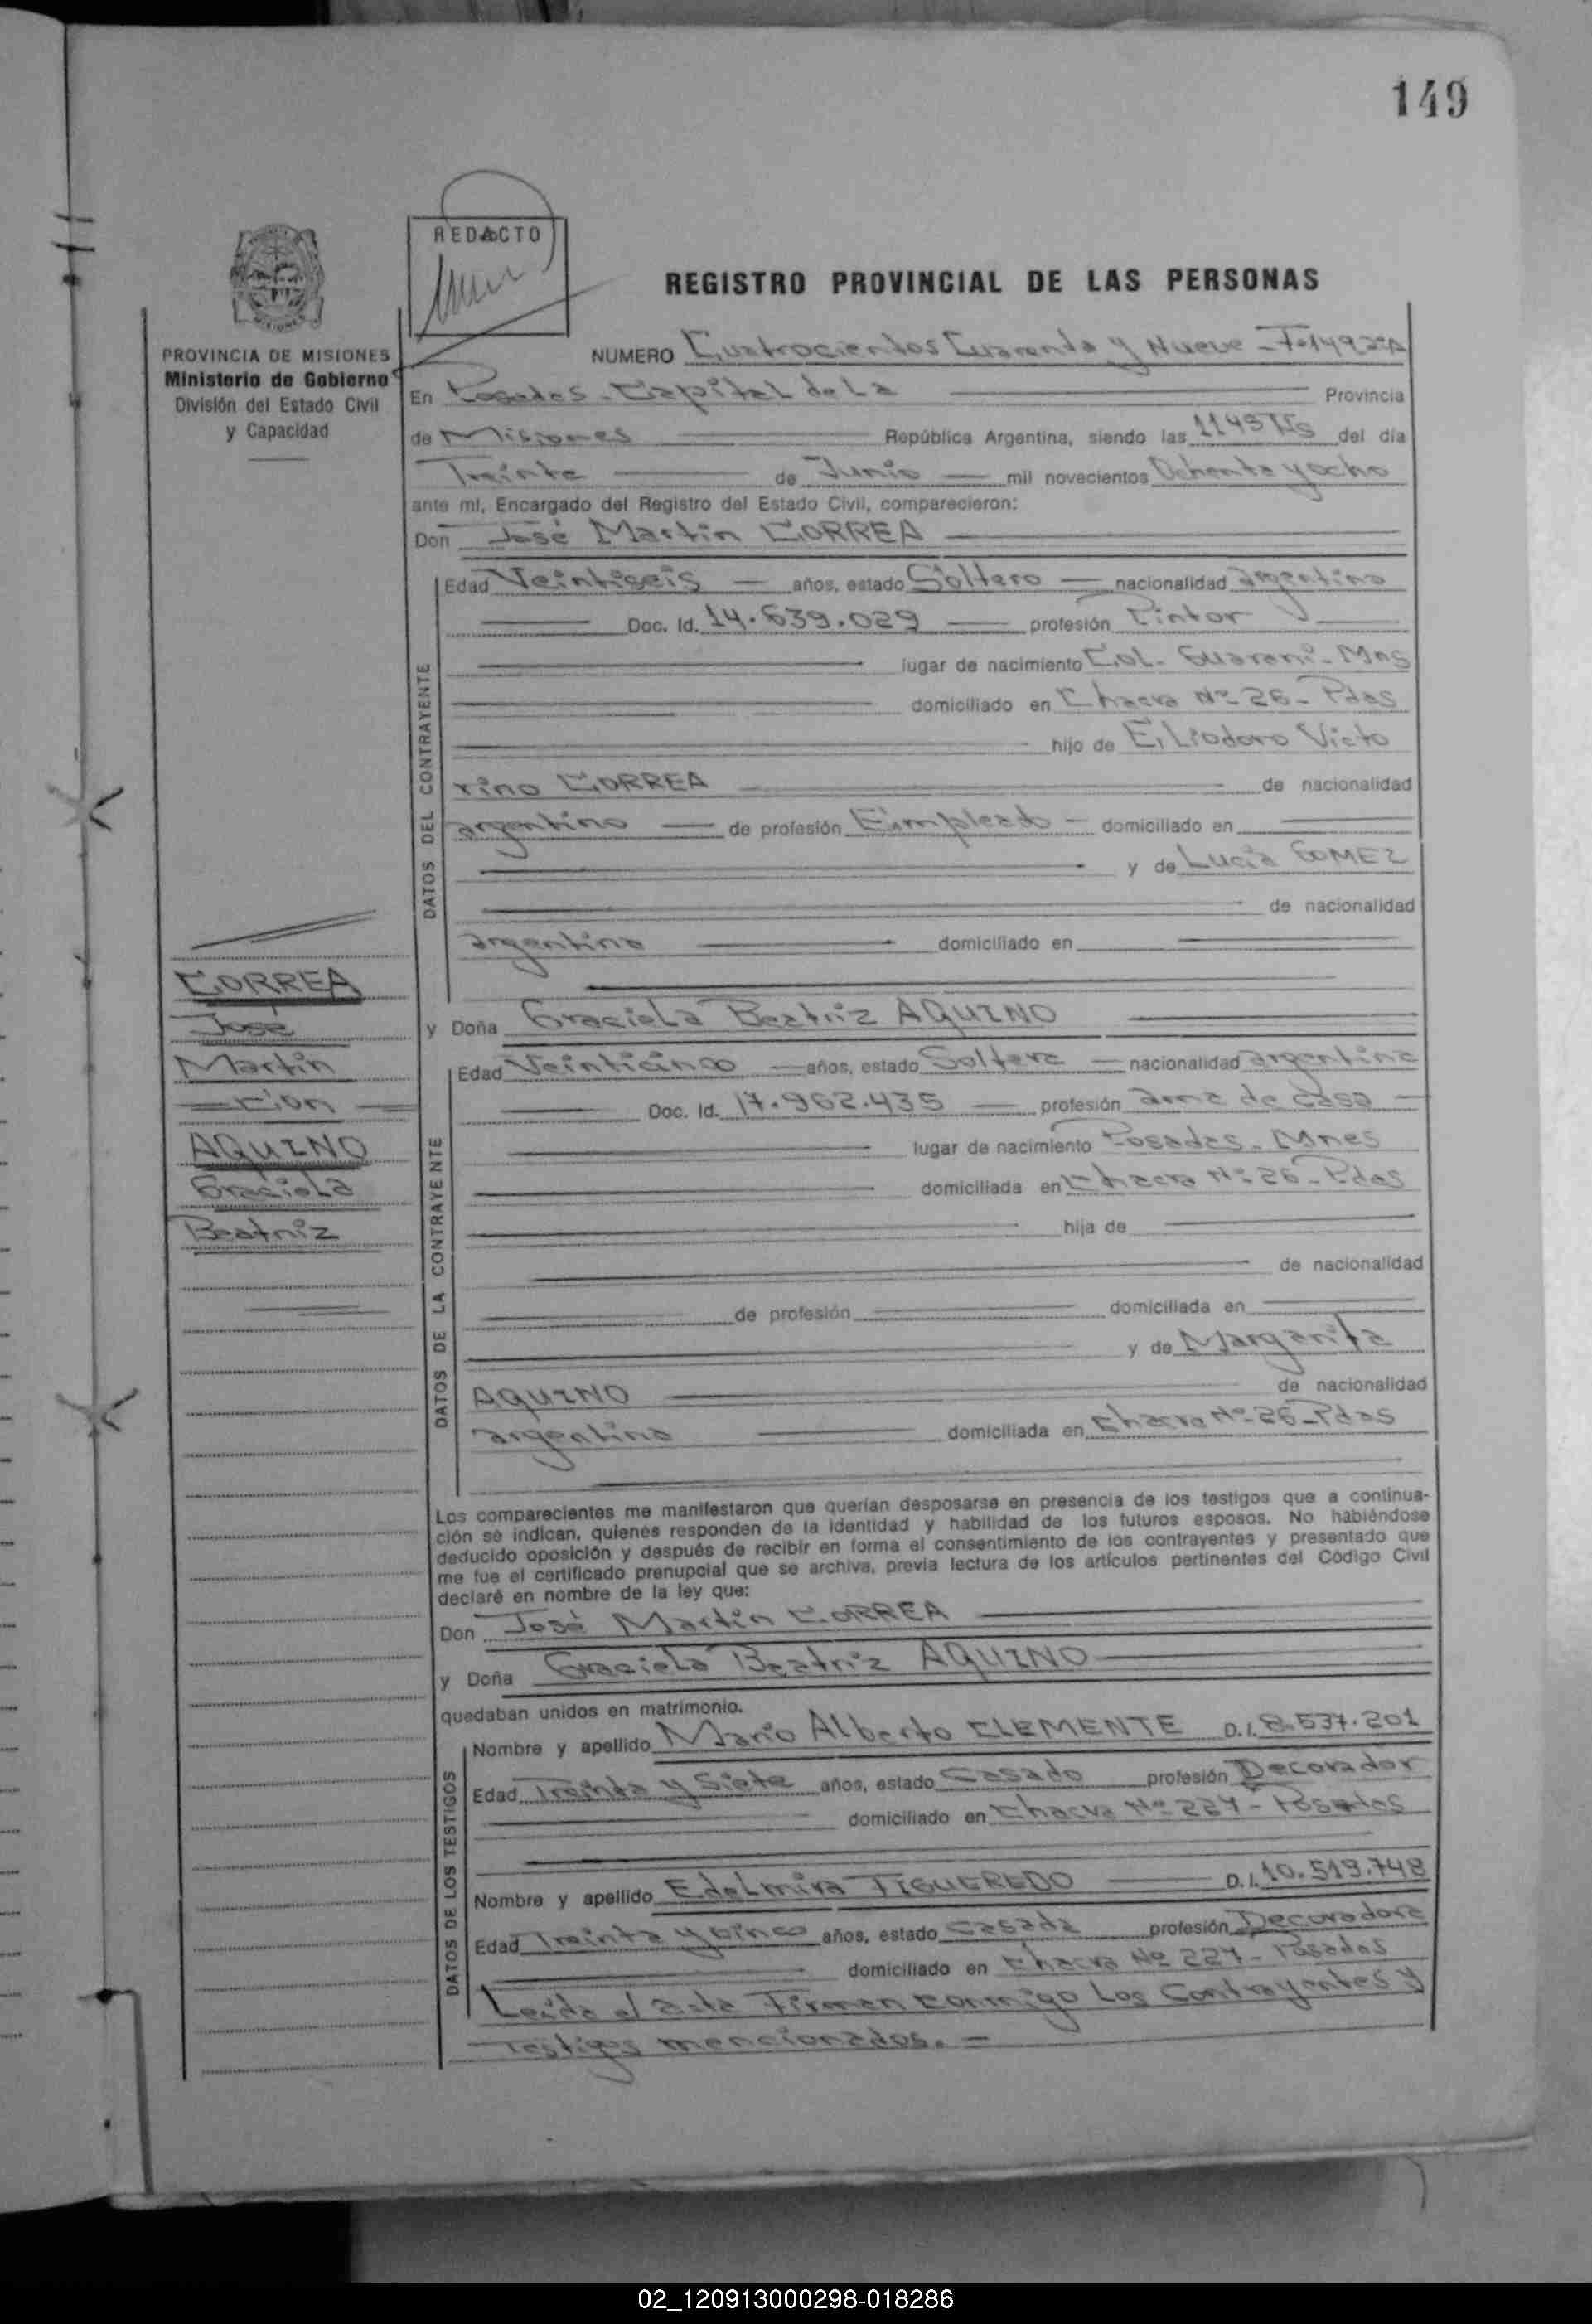 149
REDACTO
REGISTRO PROVINCIAL DE LAS PERSONAS
PROVINCIA DE MISIONES
Ministerio de Gobierno
División del Estado Civil
y Capacidad
NUMERO Cuatrocientos Cuarenta y Nueve -
En Posadas - Capital de La Provincia
de Misiones República Argentina, siendo las 1145 Hs del día
Treinta de Junio mil novecientos Ochenta y ocho
ante mí, Encargado del Registro del Estado Civil, comparecieron:
Don José Martin CORREA
DATOS DEL CONTRAYENTE
Edad Veintiseis años, estado Soltero nacionalidad argentina
Doc. Id. 14.639.029 profesión Pintor
lugar de nacimiento Col. Guarani - Mns
domiciliado en Chacra Nº 26 - Pdas
hijo de Eliodoro Victo
rino CORREA de nacionalidad
argentino de profesión Empleado - domiciliado en
y de Lucia GOMEZ
de nacionalidad
argentina domiciliado en
CORREA
José
Martin
- con -
AQUINO
Graciela
Beatriz
y Doña Graciela Beatriz AQUINO
DATOS DE LA CONTRAYENTE
Edad Veinticinco años, estado Soltera nacionalidad argentina
Doc. Id. 17.962.435 profesión ama de casa
lugar de nacimiento Posadas - Mnes
domiciliada en Chacra Nº 26 - Pdas
hija de
de nacionalidad
de profesión domiciliada en
y de Margarita
AQUINO de nacionalidad
argentina domiciliada en Chacra Nº 26 - Pdas
Los comparecientes me manifestaron que querían desposarse en presencia de los testigos que a continua-
ción se indican, quienes responden de la identidad y habilidad de los futuros esposos. No habiéndose
deducido oposición y después de recibir en forma el consentimiento de los contrayentes y presentado que
me fue el certificado prenupcial que se archiva, previa lectura de los artículos pertinentes del Código Civil
declaré en nombre de la ley que:
Don José Martin CORREA
y Doña Graciela Beatriz AQUINO
quedaban unidos en matrimonio.
DATOS DE LOS TESTIGOS
Nombre y apellido Mario Alberto CLEMENTE D.I. 8.537.201
Edad Treinta y Siete años, estado Casado profesión Decorador
domiciliado en Chacra Nº 227 - Posadas
Nombre y apellido Edelmira FIGUEREDO D.I. 10.519.748
Edad Treinta y cinco años, estado Casada profesión Decoradora
domiciliado en Chacra Nº 227 - Posadas
Leida el acta Firman conmigo Los Contrayentes y
Testigos mencionados. -
02_120913000298-018286